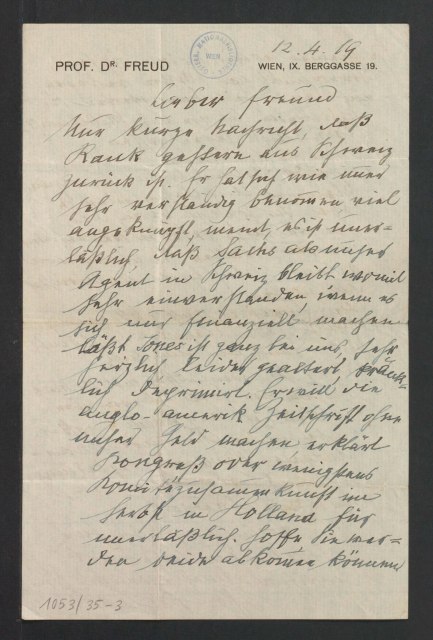 12.4.19
PROF. DR. FREUD
WIEN, IX. BERGGASSE 19.
Lieber Freund
Nur kurze Nachricht, daß
Rank gestern aus Schweiz
zurück ist. Er hat sich wie immer
sehr verständig benommen, viel
angeknüpft, meint, es ist uner=
läßlich, daß Sachs als unser
Agent in Schweiz bleibt, womit
sehr einverstanden, wenn es
sich nur finanziell machen
läßt. Jones ist ganz bei uns, sehr
herzlich, leider gealtert, kränk=
lich deprimirt. Er will die
anglo-amerik Zeitschrift ohne
unser Geld machen, erklärt
Kongreß oder wenigstens
Komitézusammenkunft im
Herbst in Holland für
unerläßlich. Hoffe Sie wer=
den beide abkommen können
1053/35-3